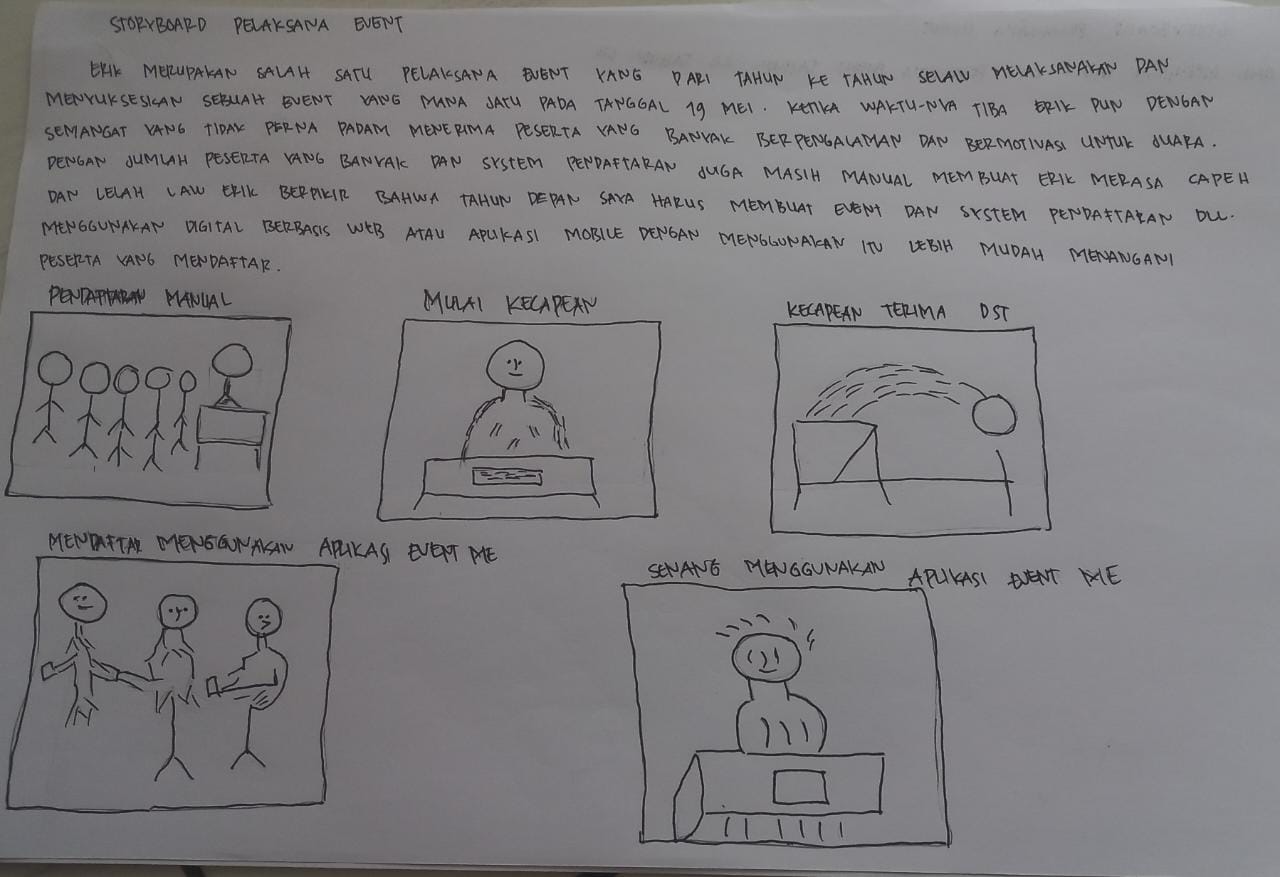 STORYBOARD PELAKSANA EVENT
ERIK MERUPAKAN SALAH SATU PELAKSANA EVENT YANG DARI TAHUN KE TAHUN SELALU MELAKSANAKAN DAN
MENYUKSESKAN SEBUAH EVENT YANG MANA JATU PADA TANGGAL 19 MEI. KETIKA WAKTU-NYA TIBA ERIK PUN DENGAN
SEMANGAT YANG TIDAK PERNA PADAM MENERIMA PESERTA YANG BANYAK BERPENGALAMAN DAN BERMOTIVASI UNTUK JUARA.
DENGAN JUMLAH PESERTA YANG BANYAK DAN SYSTEM PENDAFTARAN JUGA MASIH MANUAL MEMBUAT ERIK MERASA CAPEH
DAN LELAH LAW ERIK BERPIKIR BAHWA TAHUN DEPAN SAYA HARUS MEMBUAT EVENT DAN SYSTEM PENDAFTARAN DLL.
MENGGUNAKAN DIGITAL BERBASIS WEB ATAU APLIKASI MOBILE DENGAN MENGGUNAKAN ITU LEBIH MUDAH MENANGANI
PESERTA YANG MENDAFTAR.
PENDAFTARAN MANUAL
MULAI KECAPEAN
KECAPEAN TERIMA DST
MENDAFTAR MENGGUNAKAN APLIKASI EVENT ME
SENANG MENGGUNAKAN APLIKASI EVENT ME